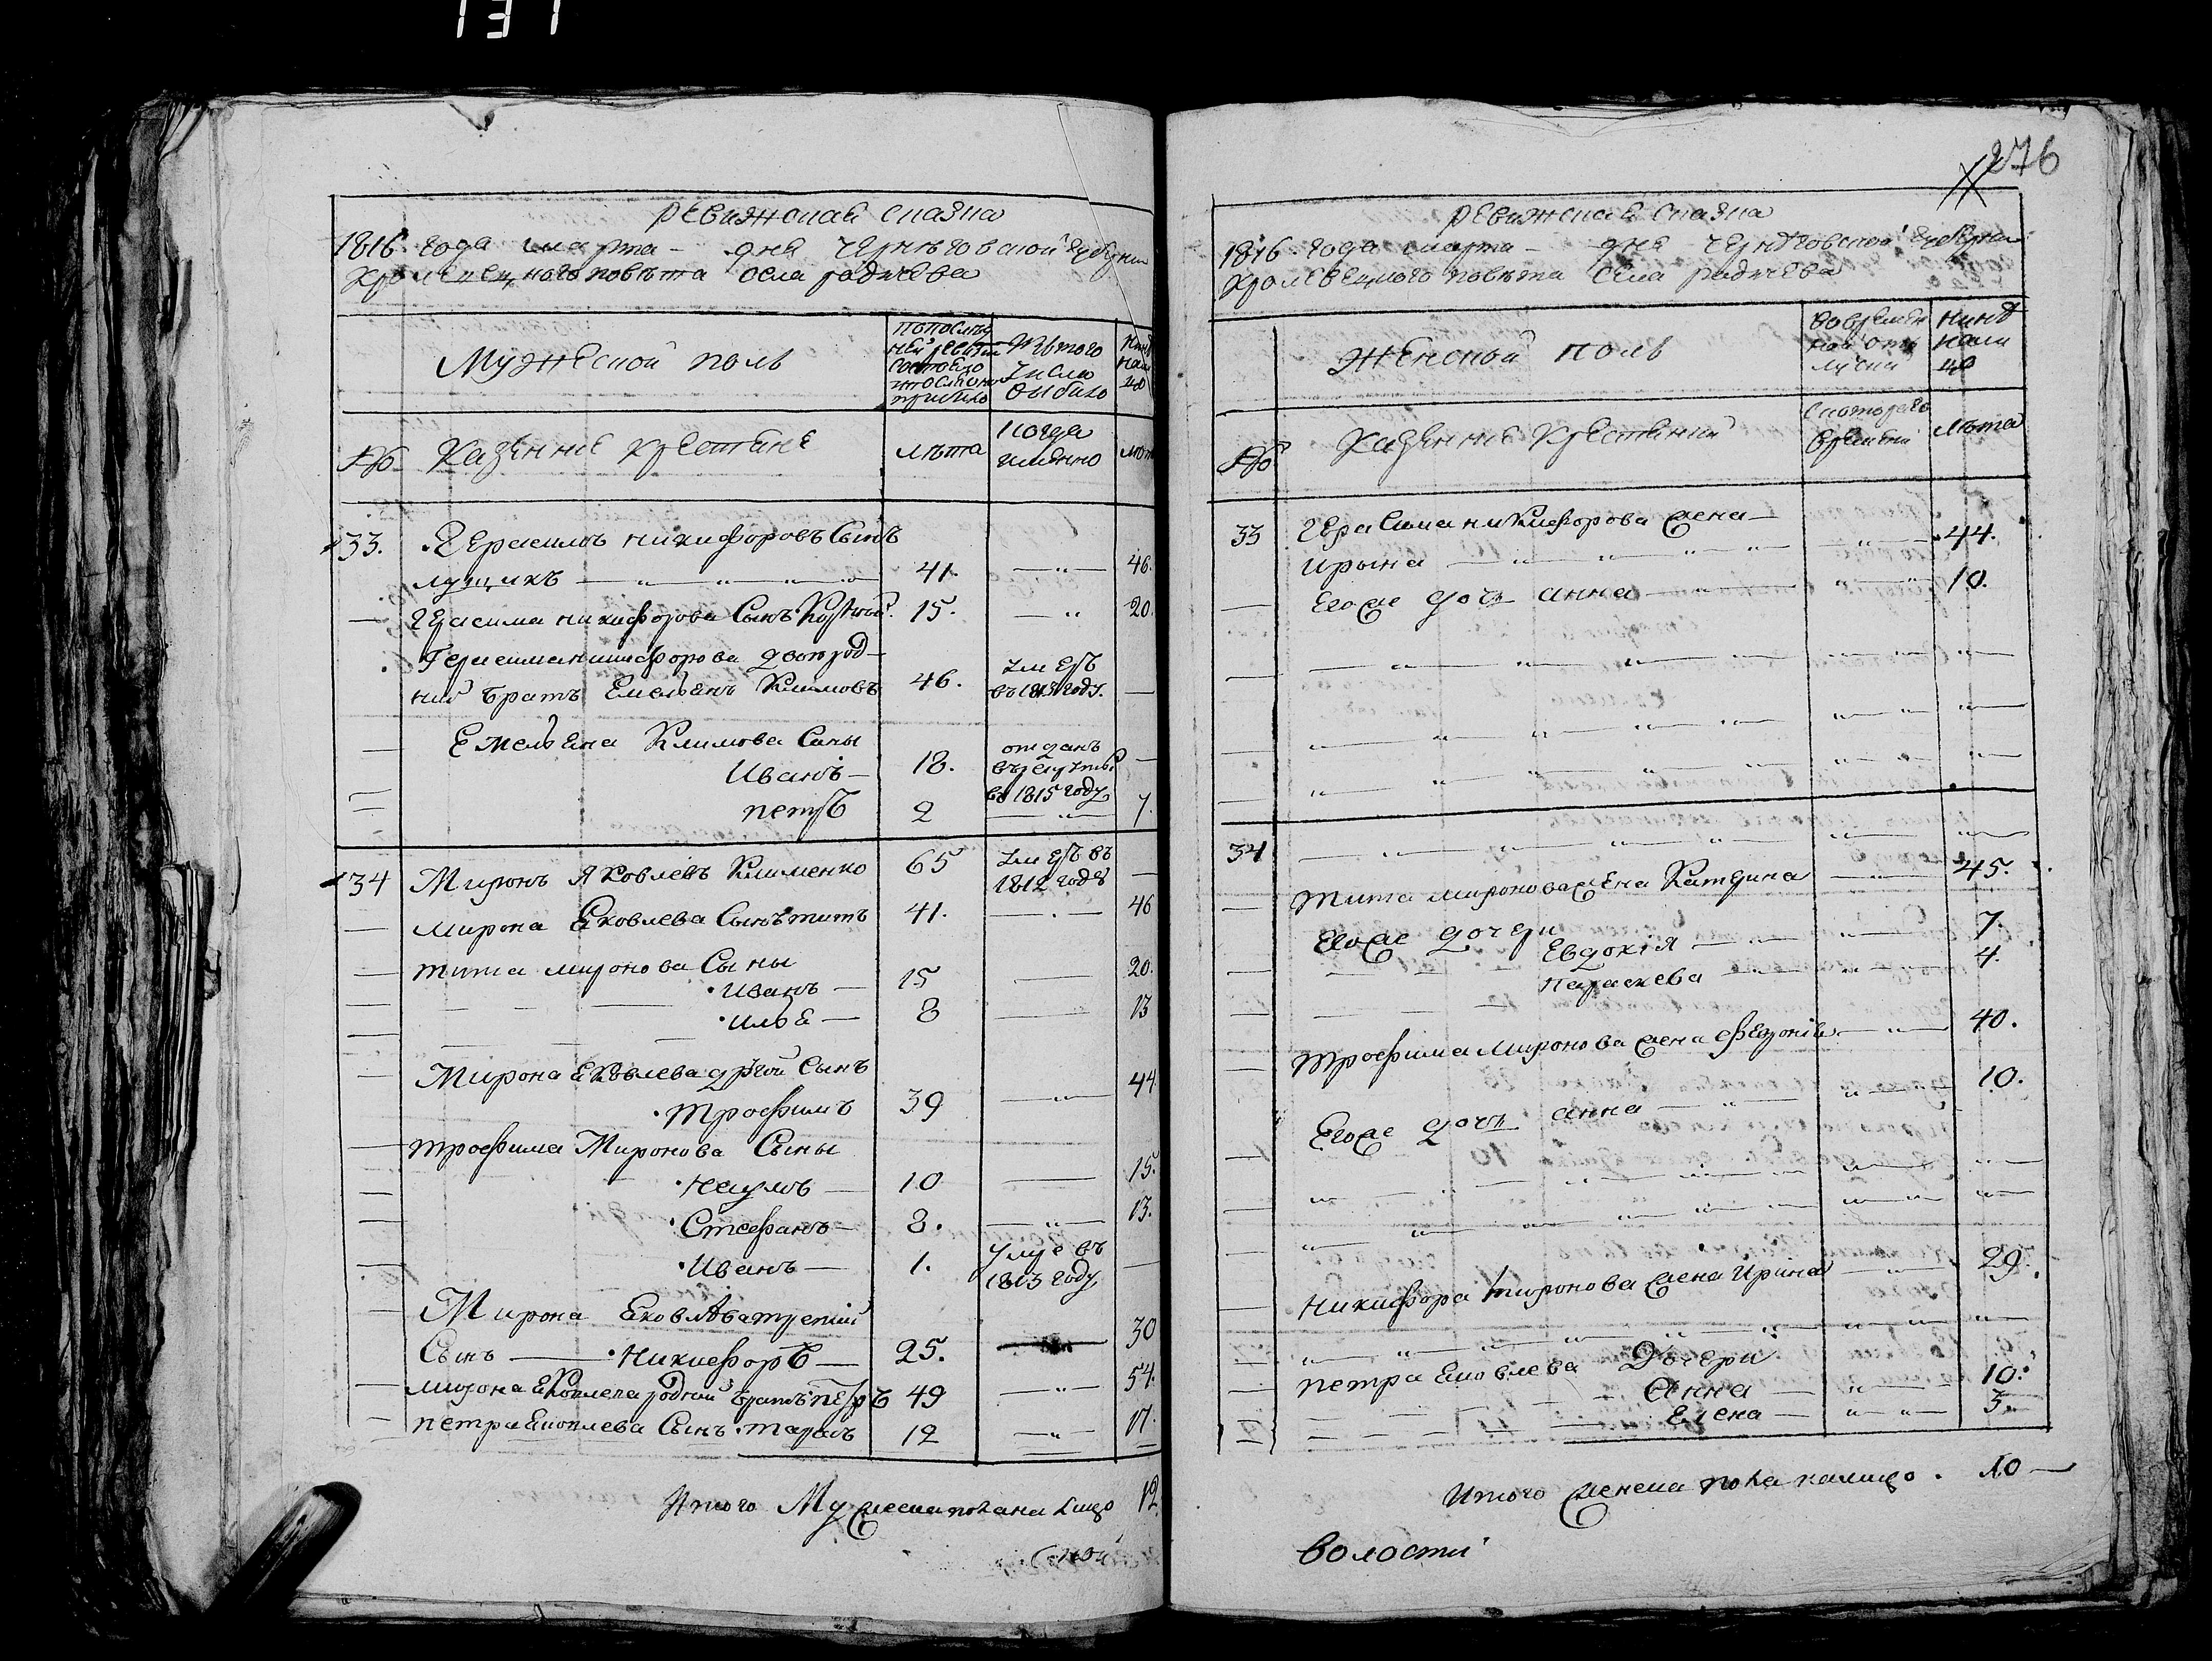 131
276
ревижская сказка
1816 года марта — дня черниговской губерни
кролевецкого повета села радичева
Мужеской пол
по последней ревизии состояло и после оной прибыло
Из того числа выбыло
Ныне на лицо
№ Казенние крестяне
лета
когда именно
33. Герасимъ никифоровъ Сынъ
лущикъ 41. 46.
Герасима никифорова Сынъ 15. 20.
Герасима никифорова двоюрод-
ний братъ Емельянъ Климовъ 46. умеръ въ 1813 году. —
Емельяна Климова Сыны
Иванъ — 18. отданъ въ рекруты в 1815 году —
петръ 2 7.
34 Миронъ Яковлевъ Клименко 65 умеръ въ 1812 годе —
Мирона Яковлева Сынъ титъ 41. 46
тита миронова Сыны
Иванъ — 15 20.
Илья — 8 13
Мирона Яковлева другой Сынъ
Трофимъ 39 44.
трофима Миронова Сыны
Наумъ — 10 15.
Стефанъ — 8. 13.
Иванъ — 1. умре въ 1813 году —
Мирона Яковлева третий
Сынъ — Никифоръ — 25. 30
мирона Яковлева родний братъ петръ 49 54.
петра Яковлева Сынъ тарасъ 12 17.
Итого Мужеска пола на лицо 12
ревижская сказка
1816 года марта — дня черниговской губерни
кролевецкого повета села радичева
Женской пол
во временной отлучки
ныне на лицо
№ Казенние Крестянки
с которого времени
лета
33 Герасима никифорова жена —
Ирына 44.
Его же дочь анна 10.
34
тита миронова жена Катерина 45.
Его же дочери
Евдокія 7.
параскева 4.
трофима Миронова жена 40.
Его же дочь анна 10.
Никифора миронова жена Ирина 29.
петра яковлева Дочери
Анна — 10.
Елена — 3.
Итого женска пола на лицо. 10 —
волости